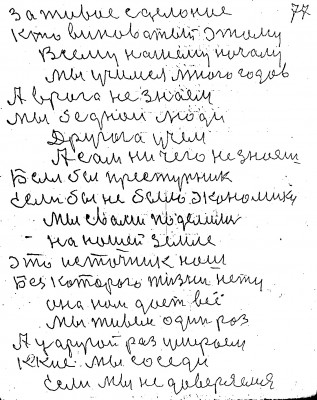 За живое сделоние 77
Кто виноватый этому
Всему нашему началу
Мы учимся много годов
А врага не знаем
Мы бедной люди
Друга учем
А сам ни чего не знаеш
Белл бел преступник
Если бы не было экономику
Мы свами поделили
на нашей земле
Это источник наш
Без которого жизни нету
она нам дает всё
мы живем один раз
А удругой раз умираем
Ккие мы соседи
если мы не доверяемя